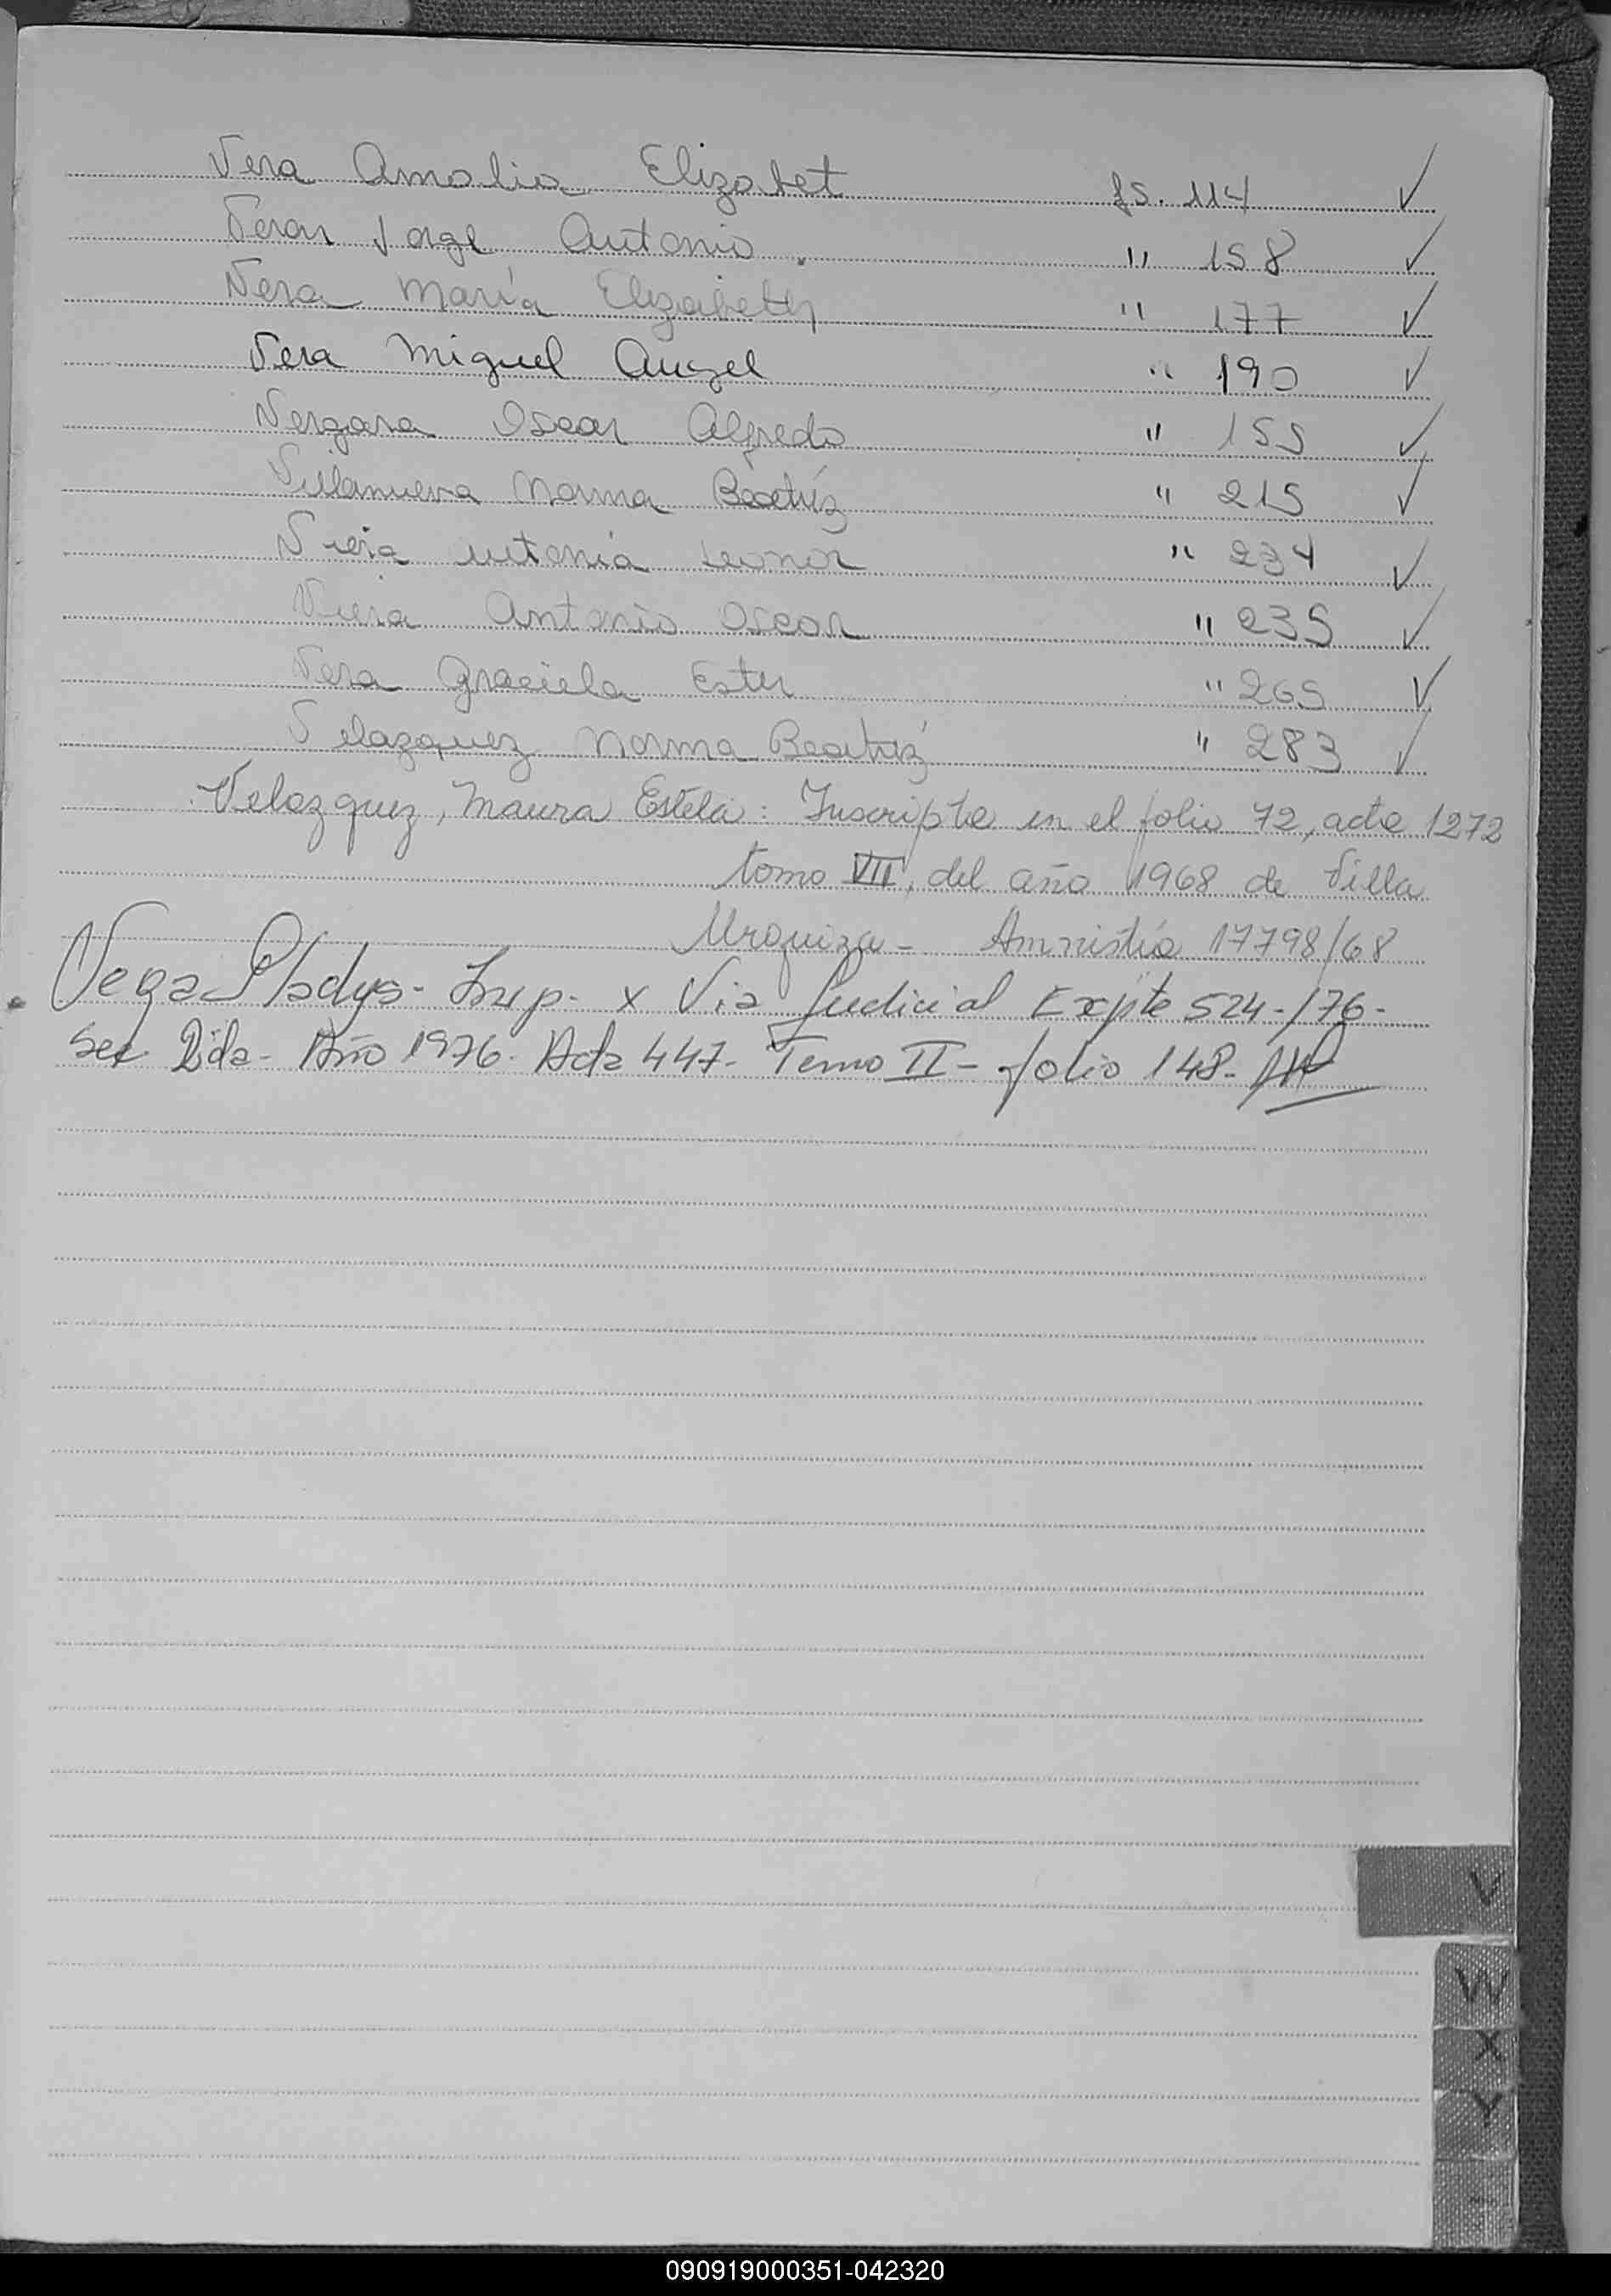 Vera Amalia Elizabet fs. 114 ✓
Veron Jorge Antonio. " 158 ✓
Vera María Elizabeth " 177 ✓
Vera Miguel Angel " 190 ✓
Vergara Oscar Alfredo " 155 ✓
Villanueva Norma Beatríz " 215 ✓
Viera Antonia Leonor " 234 ✓
Viera Antonio Oscar " 235 ✓
Vera Graciela Ester " 265 ✓
Velazquez Norma Beatríz " 283 ✓
Velazquez, Maura Estela: Inscripta en el folio 72, acta 1272
tomo VII, del año 1968 de Villa
Urquiza - Amnistía 17798/68
Vega Gladys - Insp. x Via Judicial Expte 524-/76-
Sec 2ida- Año 1976- Acta 447- Tomo II - folio 148-
V
W
X
Y
090919000351-042320